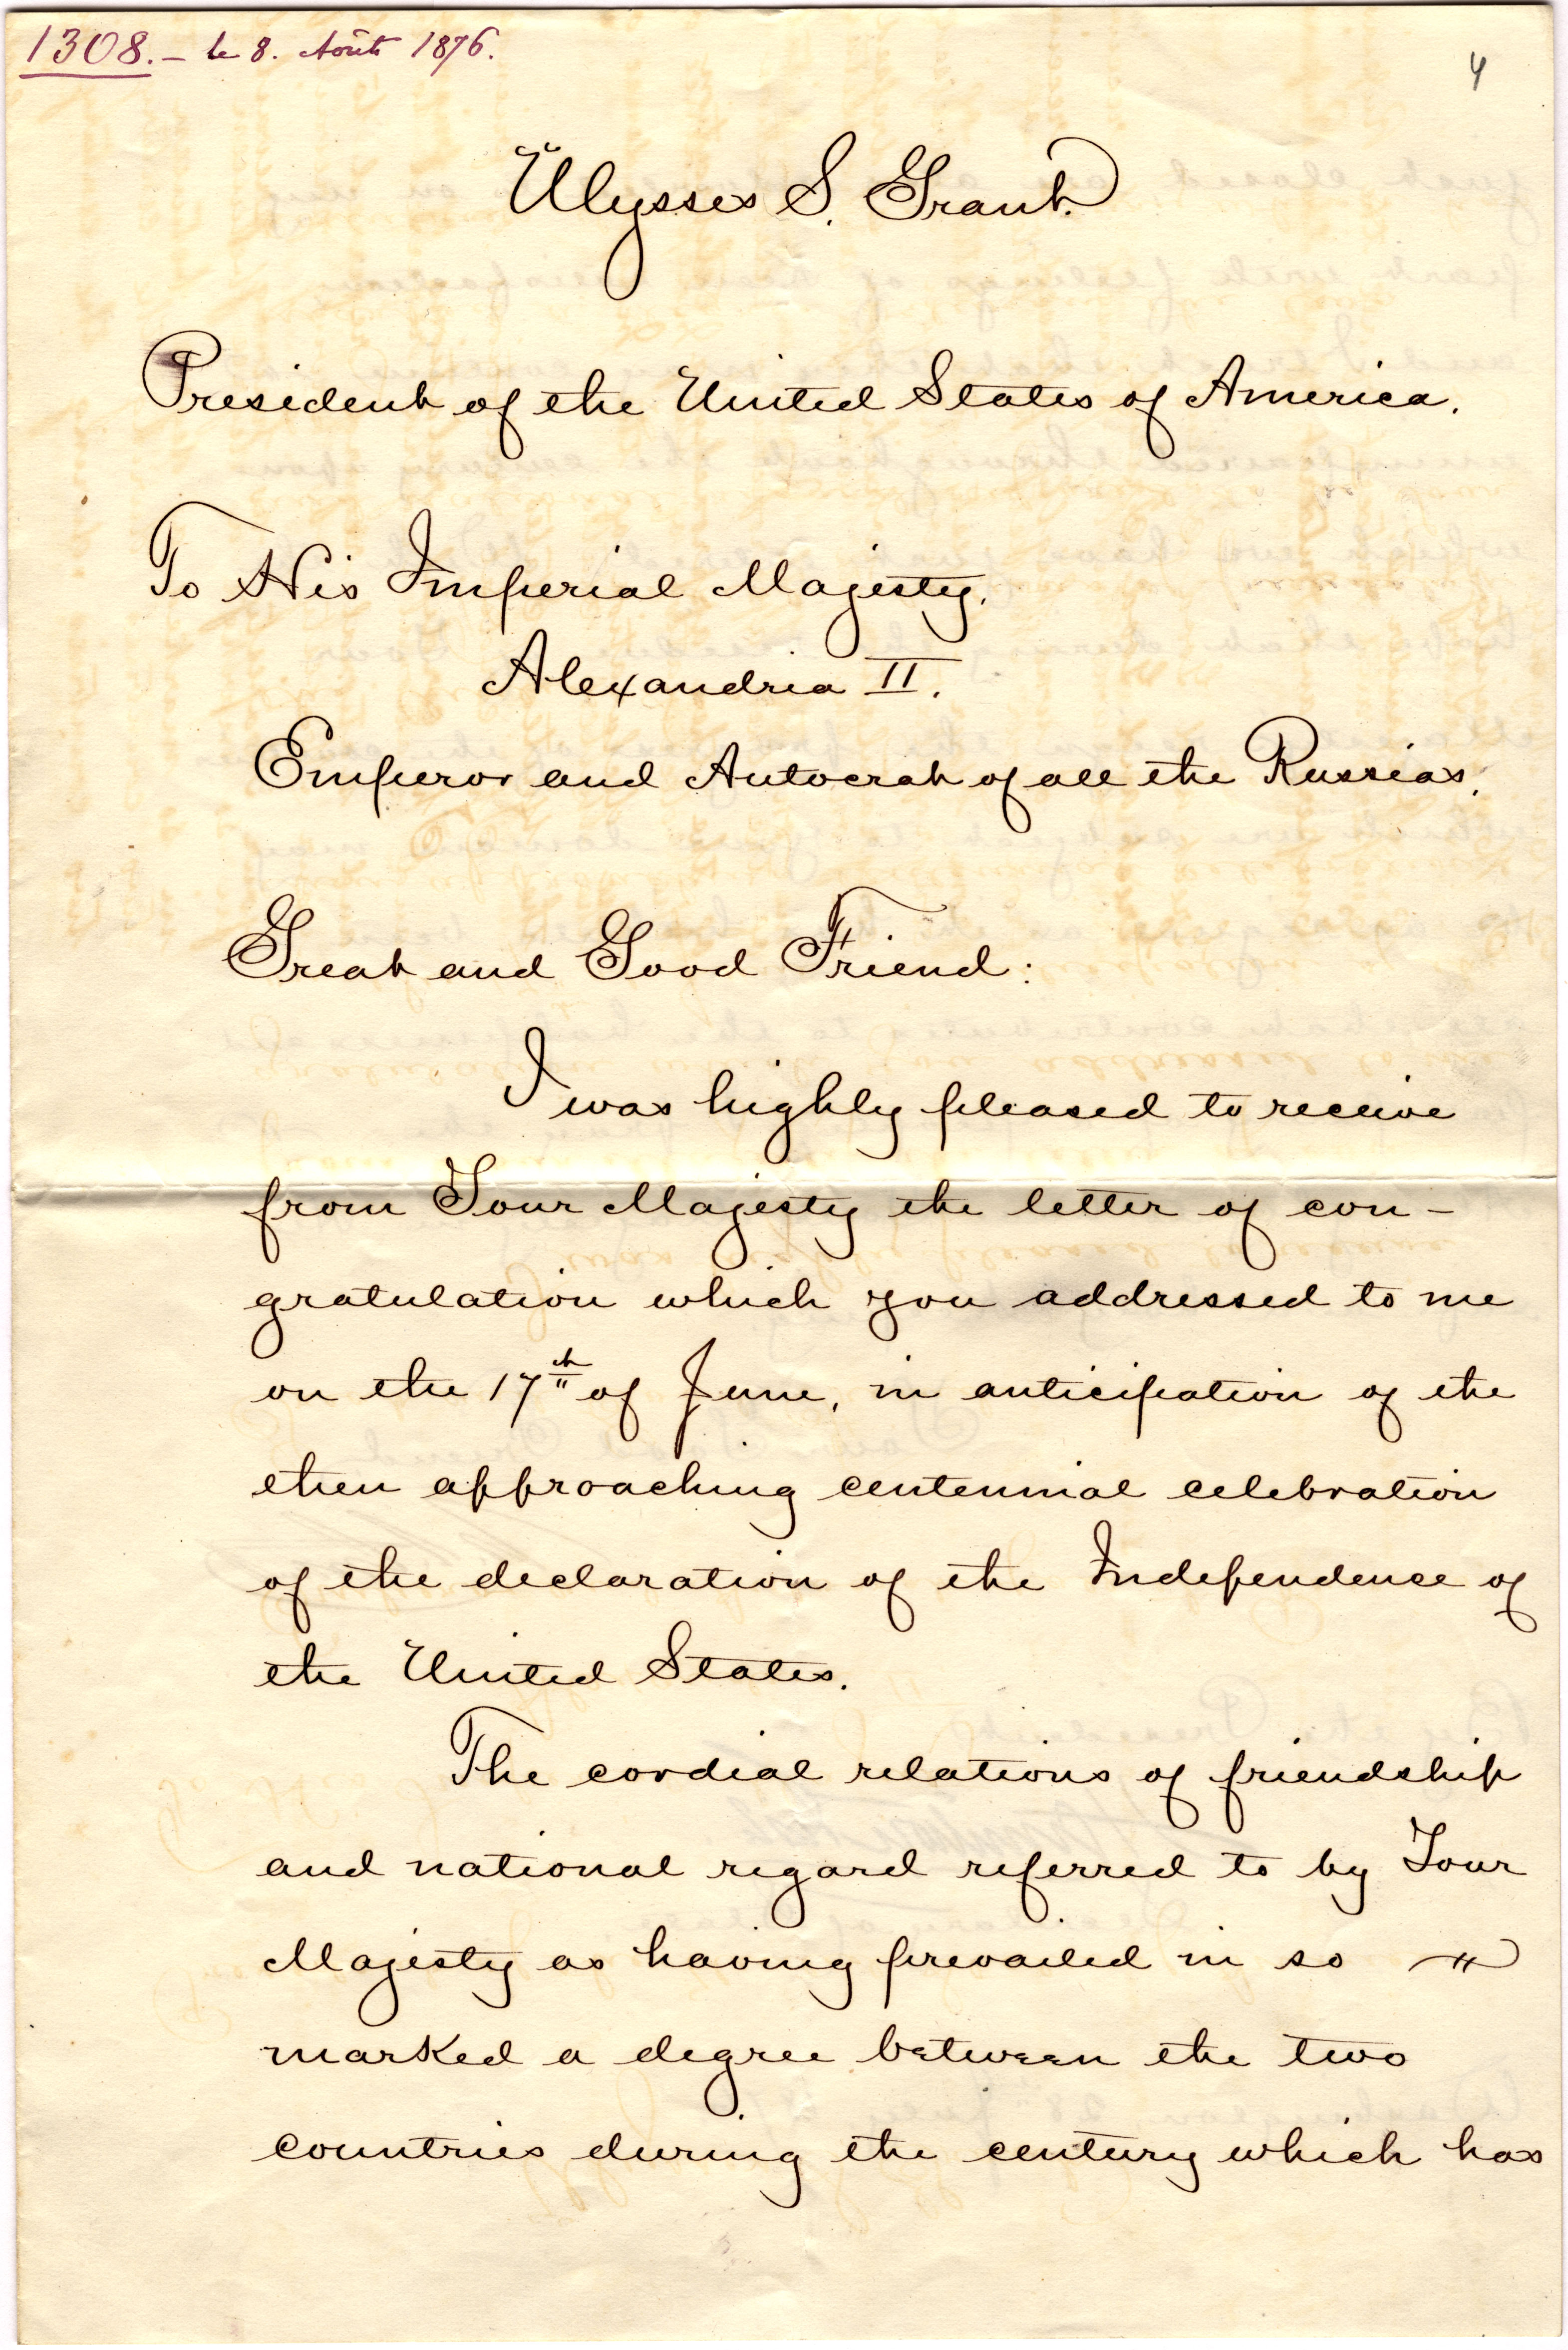 1308. – le 8. Août 1876.
4
Ulysses S. Grant.
President of the United States of America.
To His Imperial Majesty,
Alexandria II.
Emperor and Autocrat of all the Russias.
Great and Good Friend:
I was highly pleased to receive
from Your Majesty the letter of con-
gratulation which you addressed to me
on the 17th of June, in anticipation of the
then approaching centennial celebration
of the declaration of the Independence of
the United States.
The cordial relations of friendship
and national regard referred to by Your
Majesty as having prevailed in so
marked a degree between the two
countries during the century which has